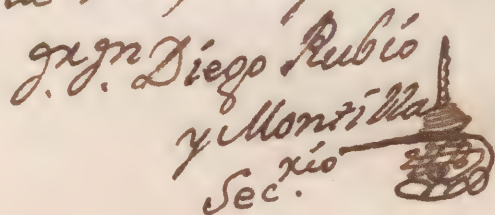 Diego Rubio
y Montilla
Sec.rio